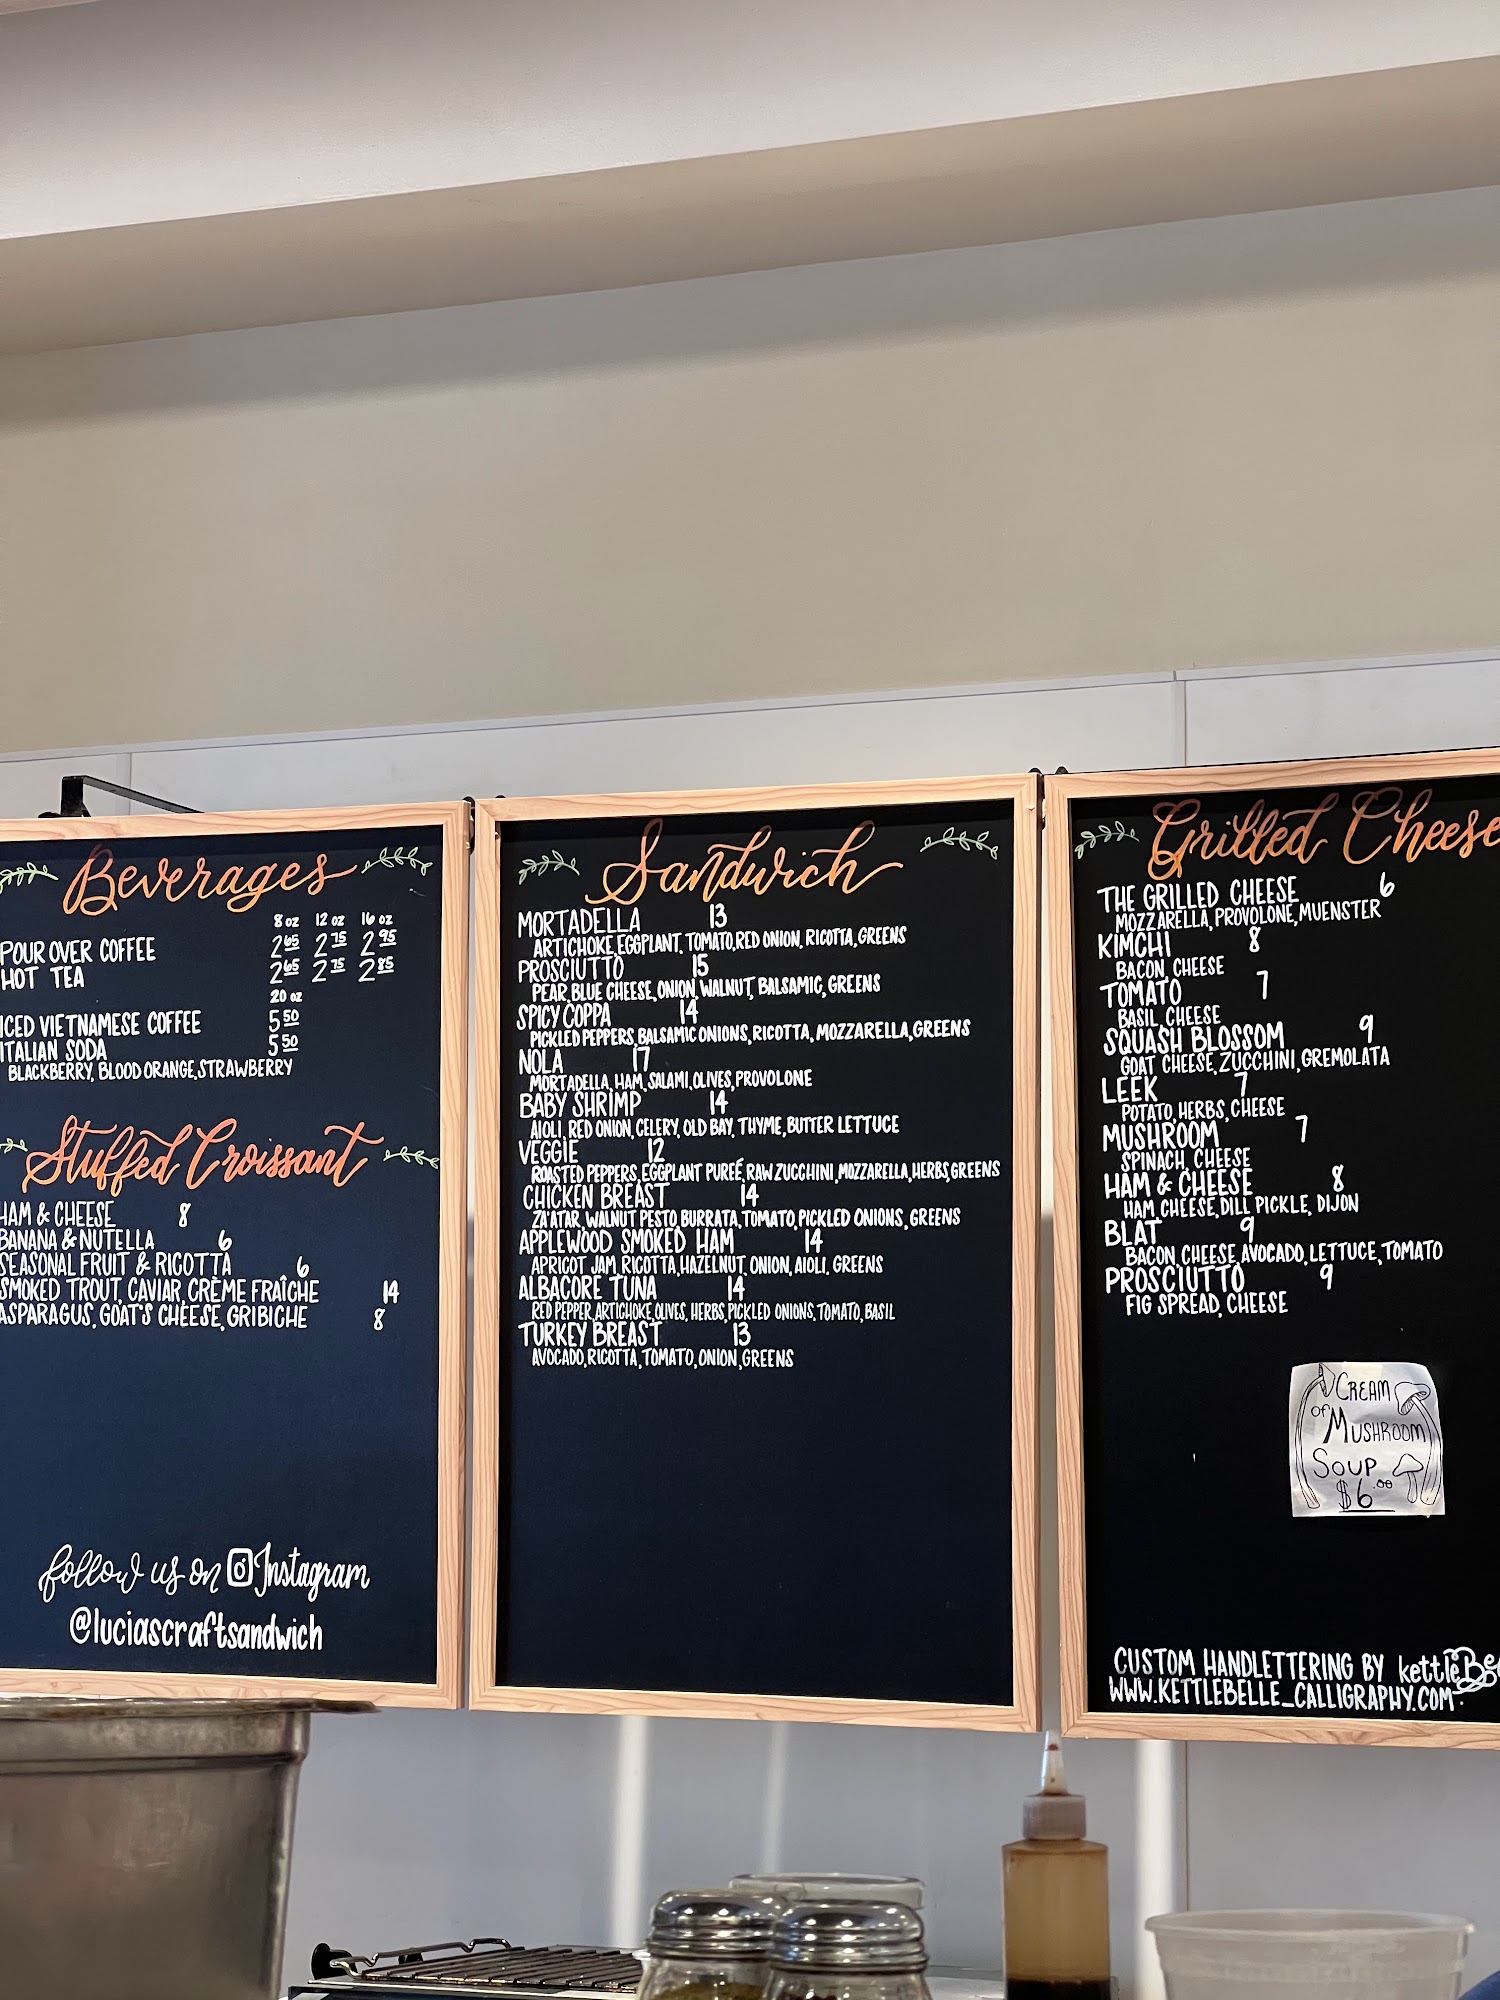 Beverages
8 oz 12 oz 16 oz
POUR OVER COFFEE 2.65 2.75 2.95
HOT TEA 2.65 2.75 2.85
20 oz
ICED VIETNAMESE COFFEE 5.50
ITALIAN SODA 5.50
BLACKBERRY, BLOOD ORANGE, STRAWBERRY
Stuffed Croissant
HAM & CHEESE 8
BANANA & NUTELLA 6
SEASONAL FRUIT & RICOTTA 6
SMOKED TROUT, CAVIAR, CRÈME FRAÎCHE 14
ASPARAGUS, GOAT'S CHEESE, GRIBICHE 8
follow us on Instagram
@luciascraftsandwich
Sandwich
MORTADELLA 13
ARTICHOKE, EGGPLANT, TOMATO, RED ONION, RICOTTA, GREENS
PROSCIUTTO 15
PEAR, BLUE CHEESE, ONION, WALNUT, BALSAMIC, GREENS
SPICY COPPA 14
PICKLED PEPPERS, BALSAMIC ONIONS, RICOTTA, MOZZARELLA, GREENS
NOLA 17
MORTADELLA, HAM, SALAMI, OLIVES, PROVOLONE
BABY SHRIMP 14
AIOLI, RED ONION, CELERY, OLD BAY, THYME, BUTTER LETTUCE
VEGGIE 12
ROASTED PEPPERS, EGGPLANT PUREÉ, RAW ZUCCHINI, MOZZARELLA, HERBS, GREENS
CHICKEN BREAST 14
ZA'ATAR, WALNUT PESTO, BURRATA, TOMATO, PICKLED ONIONS, GREENS
APPLEWOOD SMOKED HAM 14
APRICOT JAM, RICOTTA, HAZELNUT, ONION, AIOLI, GREENS
ALBACORE TUNA 14
RED PEPPER, ARTICHOKE, OLIVES, HERBS, PICKLED ONIONS, TOMATO, BASIL
TURKEY BREAST 13
AVOCADO, RICOTTA, TOMATO, ONION, GREENS
Grilled Cheese
THE GRILLED CHEESE 6
MOZZARELLA, PROVOLONE, MUENSTER
KIMCHI 8
BACON, CHEESE
TOMATO 7
BASIL, CHEESE
SQUASH BLOSSOM 9
GOAT CHEESE, ZUCCHINI, GREMOLATA
LEEK 7
POTATO, HERBS, CHEESE
MUSHROOM 7
SPINACH, CHEESE
HAM & CHEESE 8
HAM, CHEESE, DILL PICKLE, DIJON
BLAT 9
BACON, CHEESE, AVOCADO, LETTUCE, TOMATO
PROSCIUTTO 9
FIG SPREAD, CHEESE
CREAM
of MUSHROOM
SOUP
$6.00
CUSTOM HANDLETTERING BY kettleBe
WWW.KETTLEBELLE_CALLIGRAPHY.COM